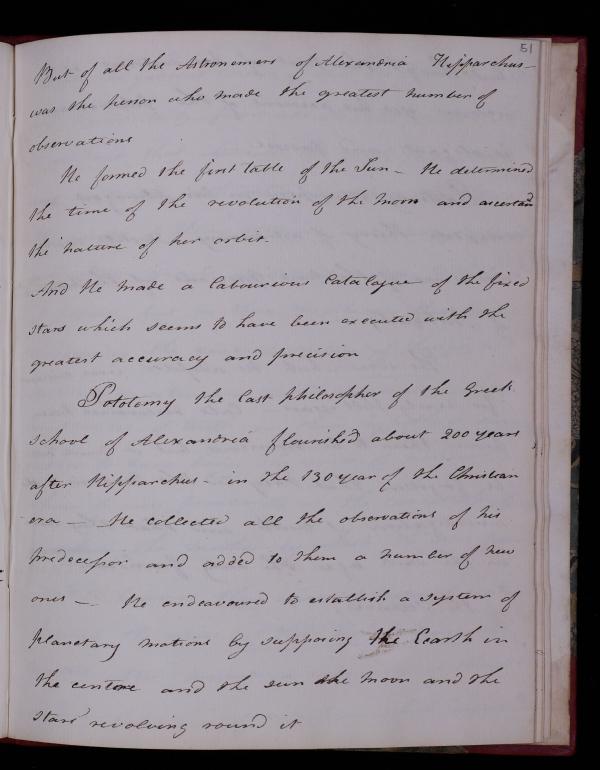 51
But of all the Astronomers of Alexandria Hipparchus -
was the person who made the greatest number of
observations
He formed the first table of the Sun - He determined
the time of the revolution of the moon and ascertaind
the nature of her orbit.
And He made a labourious Catalogue of the fixed
stars which seems to have been executed with the
greatest accuracy and precision
Pototomy the last philosopher of the Greek
school of Alexandria flourished about 200 years
after Hipparchus - in the 130 year of the Christian
era - He collected all the observations of his
predecessor and added to them a number of new
ones - He endeavoured to establish a system of
planetary motions by supposing the Earth in
the centre and the sun the moon and the
stars revolving round it